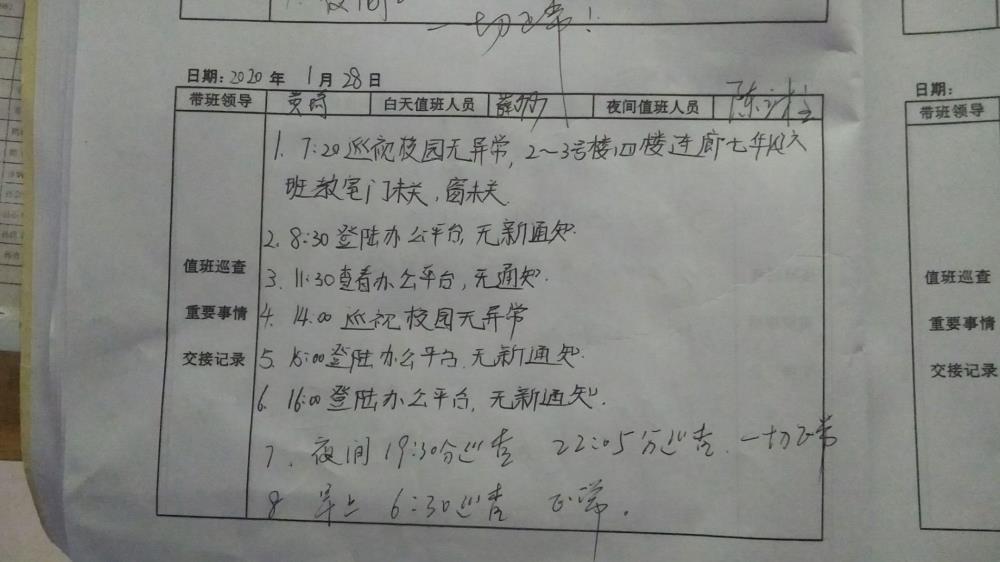 一切正常！
日期：2020年1月28日
带班领导 白天值班人员 夜间值班人员
1. 7:20巡视校园无异常，2～3号楼四楼连廊七年级六
班教室门未关，窗未关.
2. 8:30登陆办公平台，无新通知.
值班巡查
3. 11:30查看办公平台，无通知.
重要事情
4. 14:00 巡视校园无异常
交接记录
5. 15:00登陆办公平台.无新通知.
6. 16:00登陆办公平台，无新通知.
7. 夜间 19:30分巡查 22:05分巡查.一切正常
8 早上 6:30巡查 正常.
日期：
带班领导
值班巡查
重要事情
交接记录